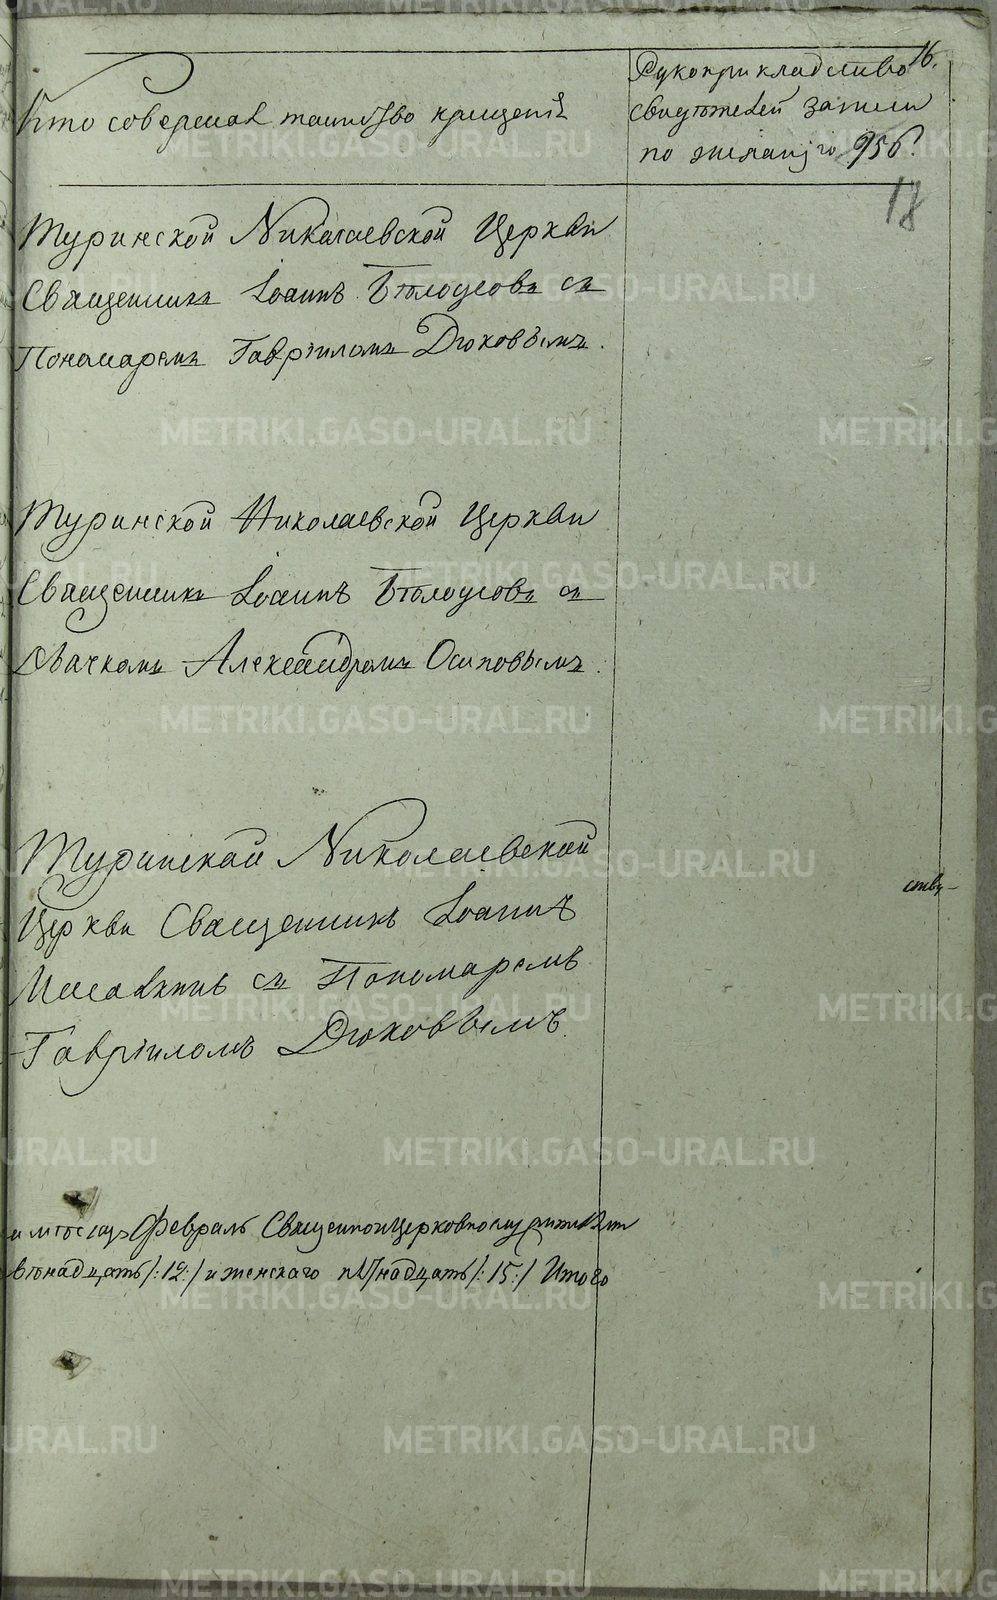 16.
Кто совершал таинство крещенія
Рукоприкладство
свидѣтелей записи
по желанію 956.
18
Туринской Николаевской Церкви
Священникъ Іоаннъ Бѣлоусовъ съ
Пономаремъ Гавріиломъ Дюковымъ.
Туринской Николаевской Церкви
Священникъ Іоаннъ Бѣлоусовъ съ
Дьячкомъ Александромъ Осиповымъ.
Туринской Николаевской
Церкви Священникъ Іоаннъ
съ Пономаремъ
Гавріиломъ Дюковымъ.
ству
и мѣсяцъ Февраль
втонадцать /:12:/ и женскаго пятнадцать /:15:/ Итого
METRIKI.GASO-URAL.RU